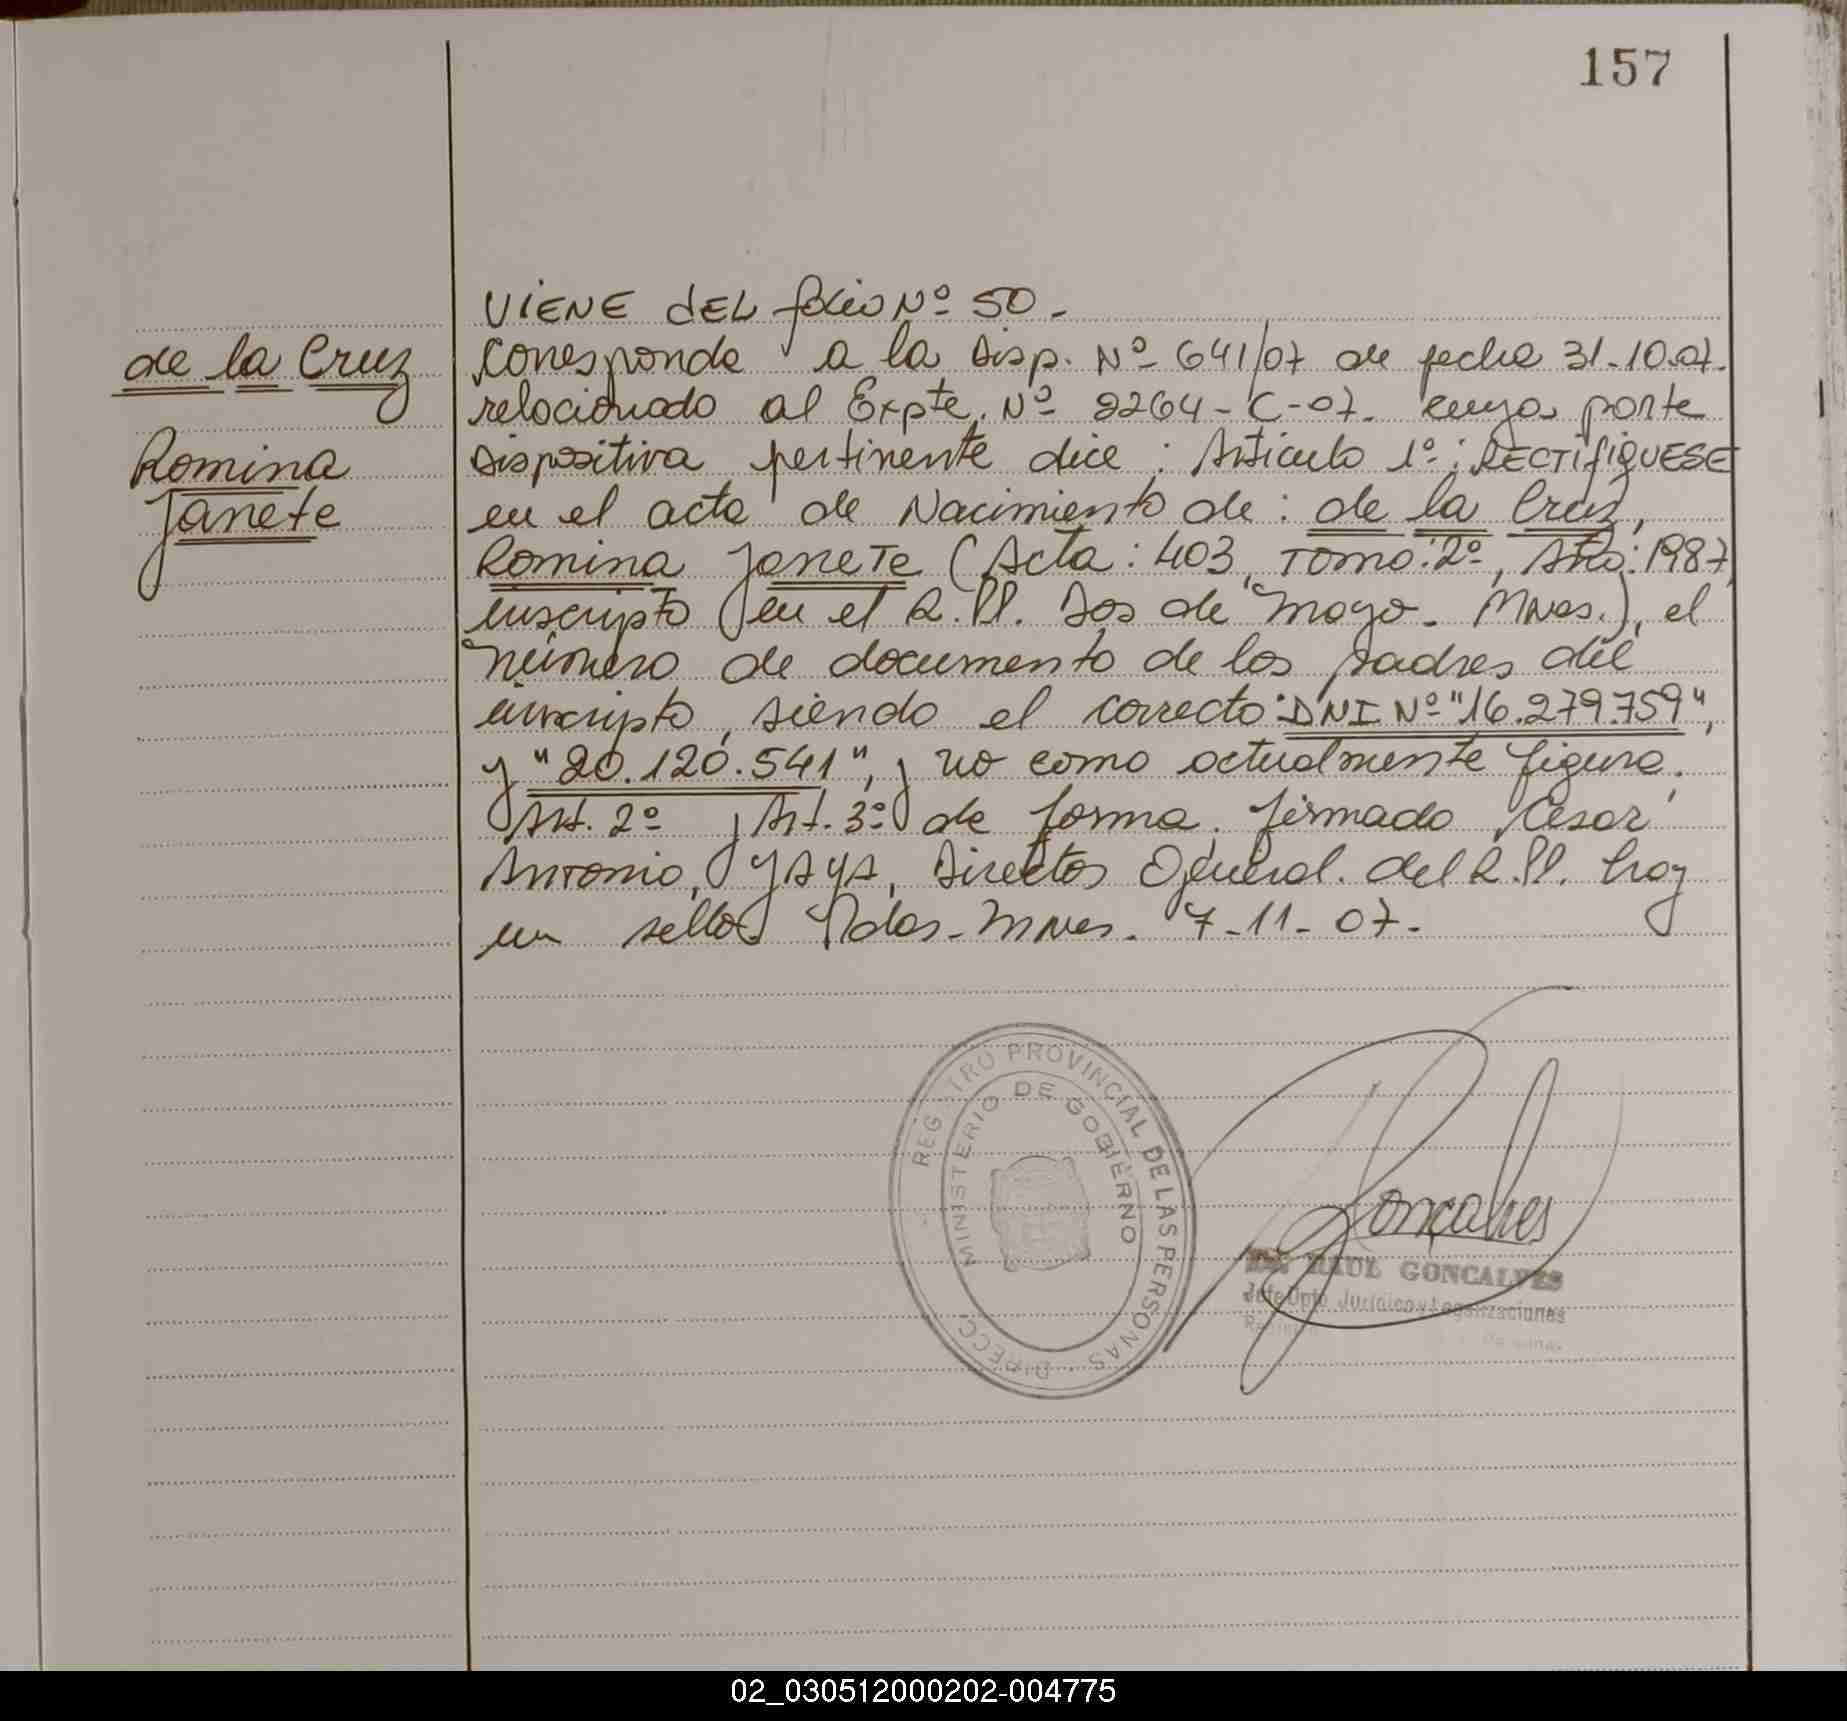 157
VIENE DEL folio Nº 50.
de la Cruz
Romina
Janete
Corresponde a la Disp. Nº 641/07 de fecha 31-10-07.
relacionado al Expte. Nº 2264-C-07. cuya parte
dispositiva pertinente dice: Artículo 1º: RECTIFIQUESE
en el acta de Nacimiento de: de la Cruz,
Romina Janete (Acta: 403, Tomo: 2º, Año: 1987,
inscripto en el R.PP. Dos de Mayo. Mnes.), el
número de documento de los padres del
inscripto, siendo el correcto: DNI Nº "16.279.759",
y "20.120.541", y no como actualmente figura.
Art. 2º y Art. 3º de forma. firmado Cesar
Antonio, YAYA, Director General. del R.PP. hay
un sello. Pdas-Mnes. 7-11-07.
REGISTRO PROVINCIAL DE LAS PERSONAS · DIRECC.
MINISTERIO DE GOBIERNO
Goncalves
RAUL GONCALVES
Jefe Dpto Jurídico y Legalizaciones
02_030512000202-004775